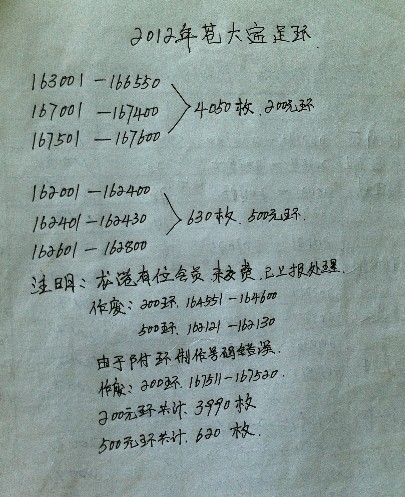 2012年苍大宜足环
163001-166550
167001-167400
167501-167600
4050枚、200元环
162001-162400
162401-162430
162601-162800
630枚、500元环.
注明: 龙港有位会员未交费.已上报处理.
作废: 200环.164551-164600
500环.162121-162130
由于附环制作号码错误.
作废: 200环.167511-167520.
200元环共计.3990枚
500元环共计.620枚.